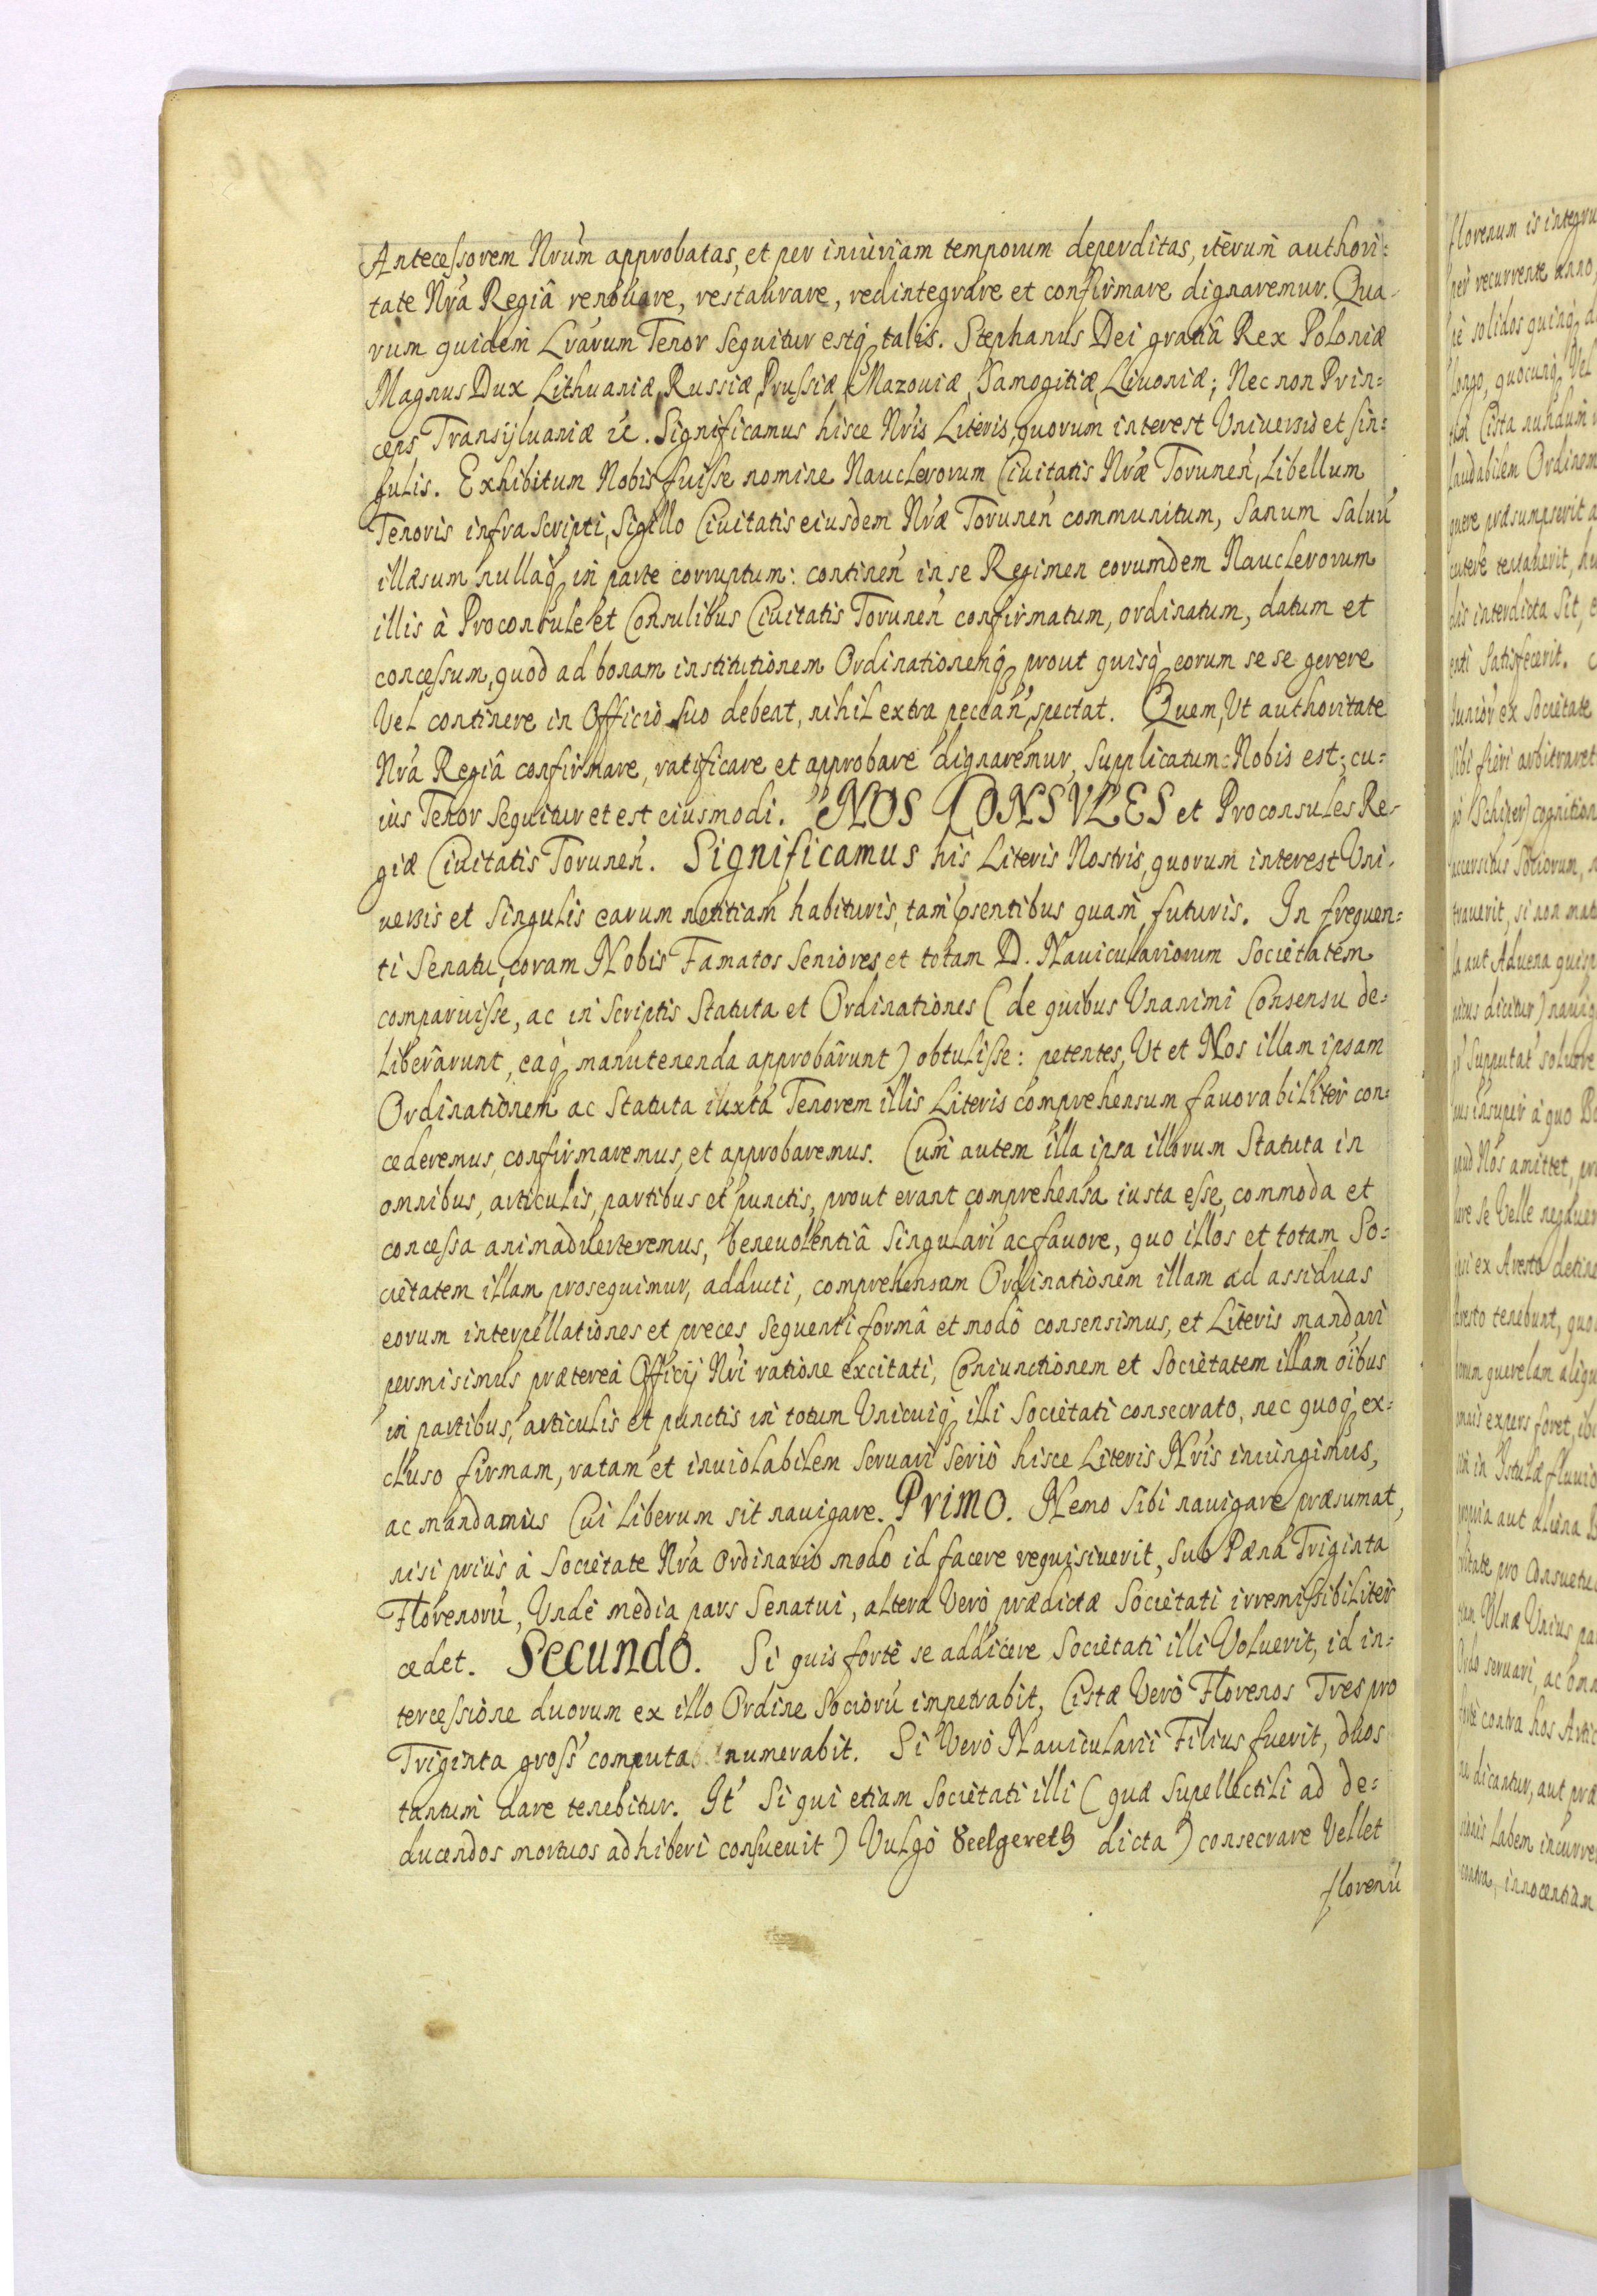 Antecessorem Nrũm approbatas, et per iniuriam temporum deperditas, iterum authori=
tate Nrã Regiâ renouare, restaurare, redintegrare et confirmare dignaremur. Qua-
rum quidem Lrãrum Tenor sequitur estq; talis. Stephanus Dei gratiâ Rex Poloniæ
Magnus Dux Lithuaniæ, Russiæ, Prussiæ, Mazouiæ, Samogitiæ, Liuoniæ; Nec non Prin=
ceps Transijluaniæ &c. Significamus hisce Nrĩs Literis, quorum interest Uniuersis et sin=
gulis. Exhibitum Nobis fuisse nomine Nauclerorum Ciuitatis Nræ̃ Toruneñ, Libellum
Tenoris infra scripti, Sigillo Ciuitatis eiusdem Nræ̃ Toruneñ communitum, Sanum saluũ
illæsum nullaq; in parte corruptum: contineñ in se Regimen eorumdem Nauclerorum
illis à Proconsule et Consulibus Ciuitatis Toruneñ confirmatum, ordinatum, datum et
concessum, quod ad bonam institutionem Ordinationemq; prout quisq; eorum se se gerere
Vel continere in Officio suo debeat, nihil extra peccañ, spectat. Quem, Ut authoritate
Nrã Regiâ confirmare, ratificare et approbare dignaremur, Supplicatum Nobis est; cu=
ius Tenor sequitur et est eiusmodi. NOS CONSVLES et Proconsules Re-
giæ Ciuitatis Toruneñ. Significamus his Literis Nostris, quorum interest Uni-
uersis et Singulis earum notitiam habituris, tam p̃sentibus quam futuris. In frequen=
ti Senatu, coram Nobis Famatos Seniores et totam D. Nauiculariorum Societatem
comparuisse, ac in Scriptis Statuta et Ordinationes (de quibus Unanimi Consensu de=
liberârunt, eaq; manutenenda approbârunt) obtulisse: petentes, Ut et Nos illam ipsam
Ordinationem ac Statuta iuxta Tenorem illis Literis comprehensum fauorabiliter con=
cederemus, confirmaremus, et approbaremus. Cum autem illa ipsa illorum Statuta in
omnibus, articulis, partibus et punctis, prout erant comprehensa iusta esse, commoda et
concessa animaduerteremus, beneuolentiâ Singulari ac fauore, quo illos et totam So=
cietatem illam prosequimur, adducti, comprehensam Ordinationem illam ad assiduas
eorum interpellationes et preces, sequenti formâ et modo consensimus, et Literis mandari
permisimus præterea Officij Nrĩ ratione excitati, Coniunctionem et Societatem illam oĩbus
in partibus, articulis et punctis in totum Unicuiq; illi Societati consecrato, nec quoq; ex=
cluso firmam, ratam et inuiolabilem seruari serio hisce Literis Nrĩs iniungimus,
ac mandamus Cui liberum sit nauigare. Primo. Nemo sibi nauigare præsumat,
nisi prius à Societate Nrã ordinario modo id facere requisiuerit, sub Pæna Triginta
Florenorũ, Unde media pars Senatui, altera Verò prædictæ Societati irremissibiliter
cedet. Secundo. Si quis fortè se addicere Societati illi Voluerit, id in=
tercessione duorum ex illo Ordine Sociorũ impetrabit, Cistæ Verò Florenos Tres pro
Triginta gross̃ computa numerabit. Si Verò Nauicularii Filius fuerit, duos
tantum dare tenebitur. It̃ Si qui etiam Societati illi (quæ Supellectili ad de=
ducendos mortuos adhiberi consueuit) Vulgò Seelgereth dicta) consecrare Vellet
florenũ
florenum is integru
per recurrente anno,
solidos quinq;
longo, quocunq; Vel
Cista nundum
laudabilem Ordinem
præsumpserit a
tentauerit,
interdicta sit,
satisfecerit.
Iunior ex Societate
sibi fieri arbitraret
(Schiper) cognition
Sociorum,
trauerit, si non
aut Aduena quisp
dicitur) nauig
Supputat soluere
insuper à quo
Nos amittet,
se Velle
ex Aresto detine
Aresto tenebunt, quo
querelam aliqu
expers foret,
in Istulæ fluuio
propria aut aliena
pro Consuetu
Ulnæ Unius pa
Ordo seruari, ac omn
contra hos Artic
dicantur, aut præ
Labem incurre
contra, innocentiam